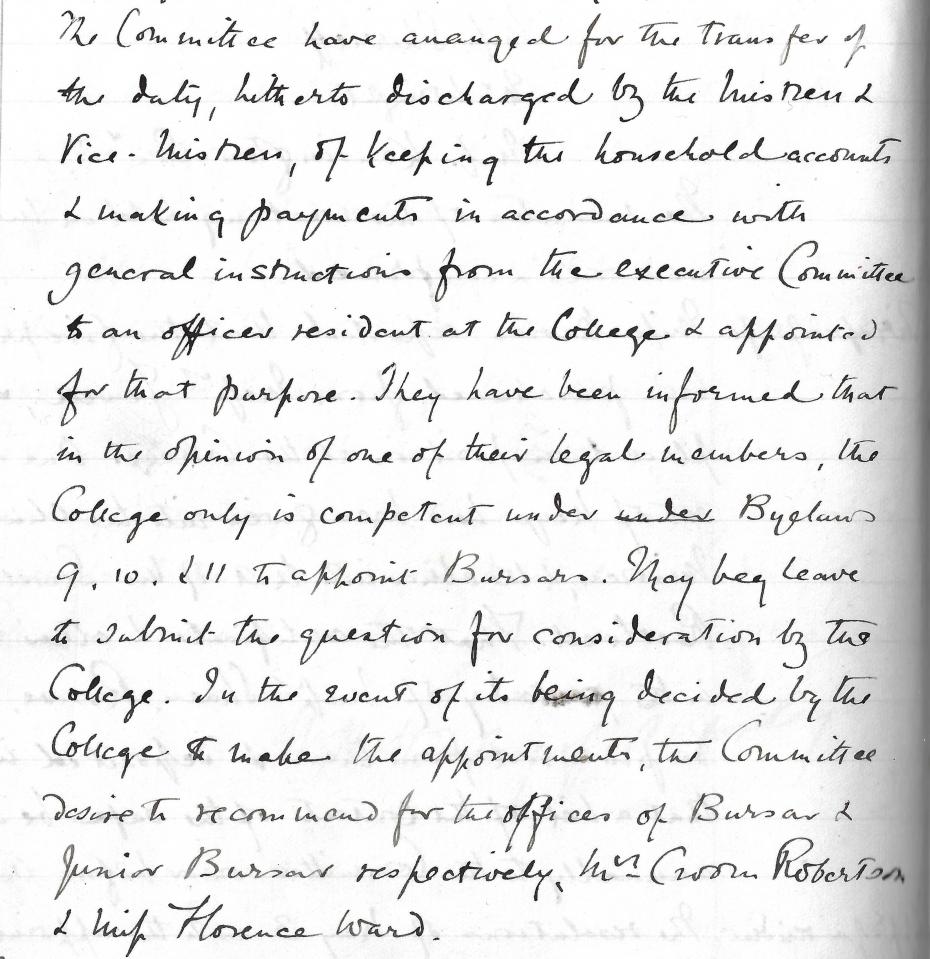 The Committee have arranged for the transfer of
the duty, hitherto discharged by the Mistress &
Vice-Mistress, of keeping the household accounts
& making payments in accordance with
general instructions from the executive Committee
to an officer resident at the College & appointed
for that purpose. They have been informed that
in the opinion of one of their legal members, the
College only is competent under under Byelaws
9. 10. & 11 to appoint Bursars. They beg leave
to submit the question for consideration by the
College. In the event of its being decided by the
College to make the appointments, the Committee
desire to recommend for the offices of Bursar &
Junior Bursar respectively, Mrs Croom Robertson
& Miss Florence Ward.